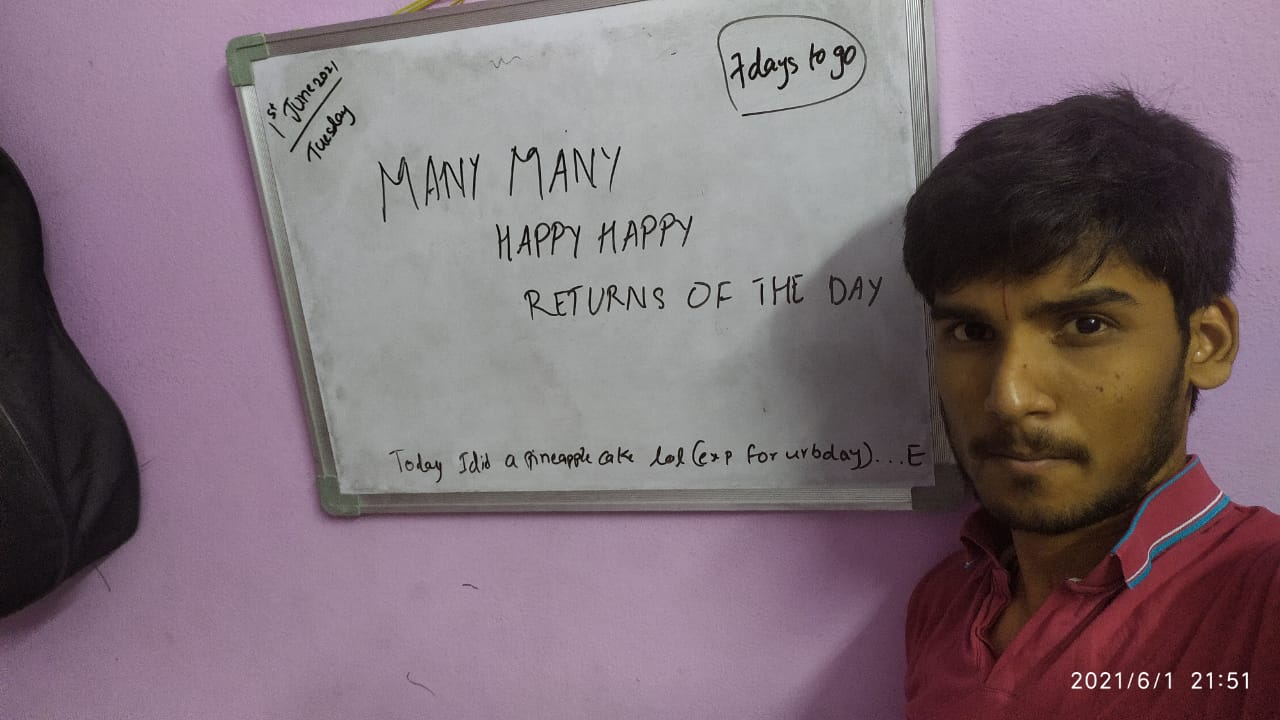 1st June 2021
Tuesday
7 days to go
MANY MANY
HAPPY HAPPY
RETURNS OF THE DAY
Today I did a pineapple cake lol (exp for ur bday)...E
2021/6/1 21:51